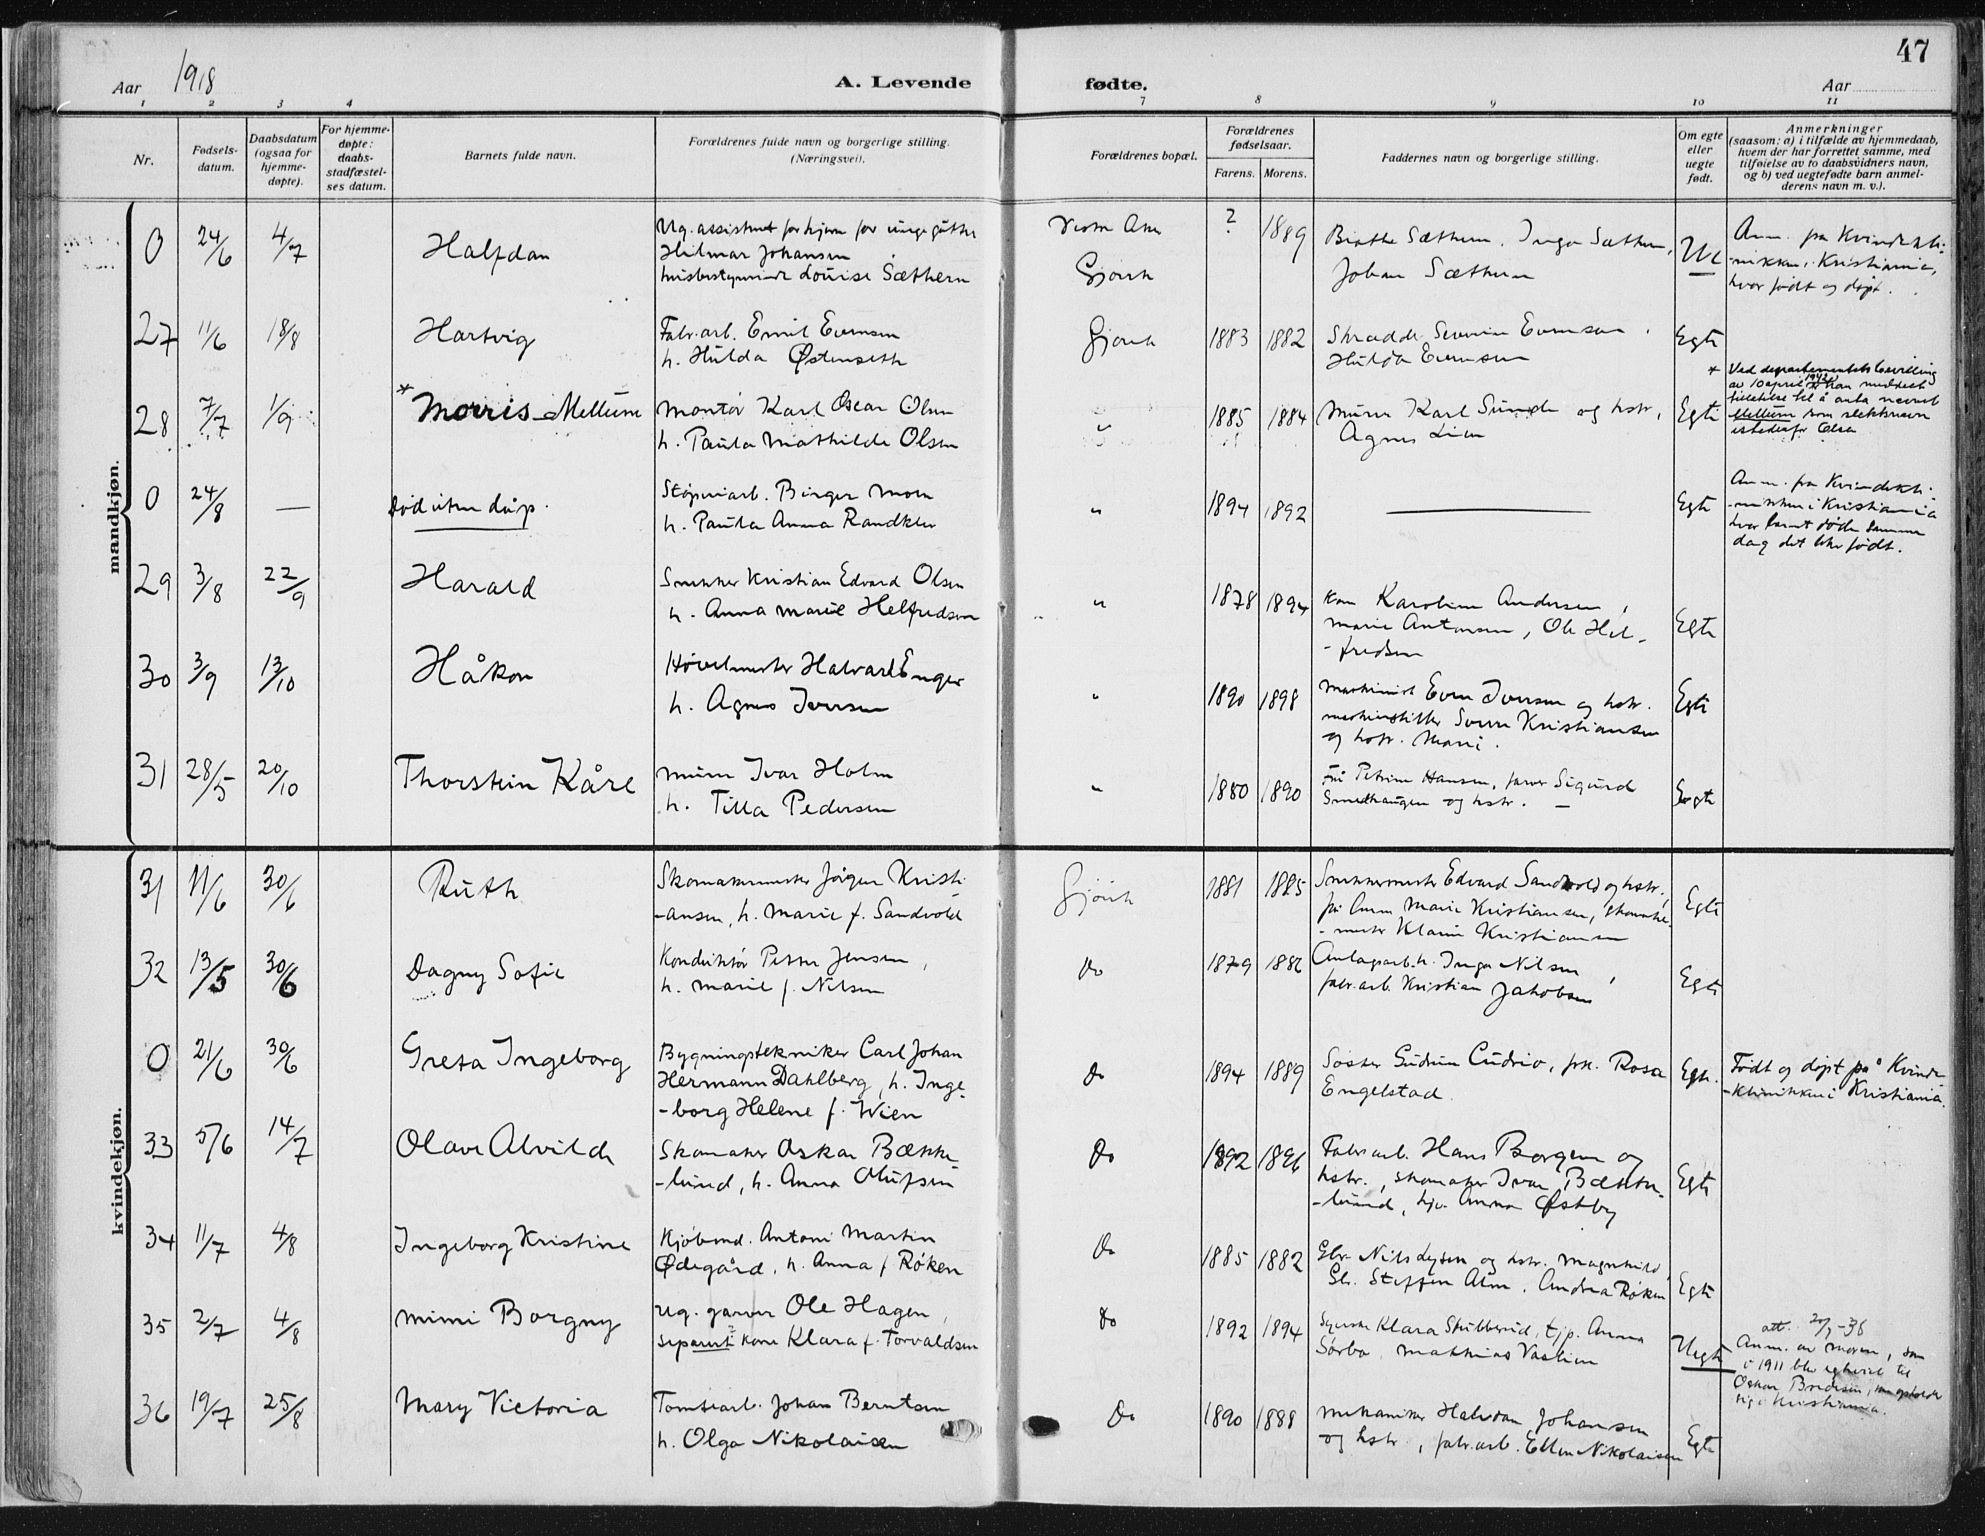 47
Aar 1918
A. Levende fødte.
Aar
1 2 3 4 7 8 9 10 11
Nr.
Fødsels-
datum.
Daabsdatum
(ogsaa for
hjemme-
døpte).
For hjemme-
døpte:
daabs-
stadfæstel-
ses datum.
Barnets fulde navn.
Forældrenes fulde navn og borgerlige stilling.
(Næringsvei).
Forældrenes bopæl.
Forældrenes
fødselsaar.
Farens. Morens.
Faddernes navn og borgerlige stilling.
Om egte
eller
uegte
født.
Anmerkninger
(saasom: a) i tilfælde av hjemmedaab,
hvem der har forrettet samme, med
tilføielse av to daabsvidners navn,
og b) ved uegtefødte barn anmel-
derens navn m. v.).
mandkjøn.
0 24/6 4/7 Halfdan
Ug. assistent for hjem for unge gutter
Hilmar Johansen
husbestyrerinde Louise Sæthern
Gjøvik
? 1889
Sæthern, Inga Sæthern,
Johan Sæthern
Ue
Anm. fra Kvindekli-
nikken i Kristiania,
hvor født og døpt.
27 11/6 18/8 Hartvig
Fabr.arb. Emil Evensen
h. Hulda Østenseth
Gjøvik 1883 1882
Severin Evensen
Hulda Evensen
Egte
28 7/7 1/9 * Morris Mellum
Montør Karl Oscar Olsen
h. Paula Mathilde Olsen
" 1885 1884
Murer Karl Sunde og hstr.,
Agnes Lien
Egte
* Ved departementets bevilling
av 10 april 1942 er han meddelt
tillatelse til å anta navnet
Mellum som slektsnavn
istedenfor Olsen
0 24/8 — Død uten dåp.
Støperiarb. Birger Moen
h. Paula Anna Randklev
" 1894 1892 —
Egte
Anm. fra Kvindekli-
nikken i Kristiania
hvor barnet døde samme
dag det blev født.
29 3/8 22/9 Harald
Snekker Kristian Edvard Olsen
h. Anna Marie Helfredsen
" 1878 1894
Kone Karoline Andersen,
Marie Antonsen, Ole Hel-
-fredsen
Egte
30 3/9 13/10 Håkon
Høvelmester Halvard Enger
h. Agnes Iversen
" 1890 1898
Maskinist Even Iversen og hstr.
Søren Kristiansen
og hstr. Marie.
Egte
31 28/5 20/10 Thorstein Kåre
Murer Ivar Holm
h. Tilla Pedersen
" 1880 1890
Fru Petrine Hansen, farver Sigurd
Smedhaugen og hstr. —
Egte
kvindekjøn.
31 11/6 30/6 Ruth
Skomakermester Jørgen Kristi-
-ansen, h. Marie f. Sandvold
Gjøvik 1881 1885
Snekkermester Edvard Sandvold og hstr.,
Marie Kristiansen, skomaker-
-mester Kristiansen
Egte
32 13/5 30/6 Dagny Sofie
Konduktør Petter Jensen,
h. Marie f. Nilsen
Do 1879 1886
Anlagsarb. h. Inga Nilsen,
fabr.arb. Kristian Jakobsen
Egte
0 21/6 30/6 Greta Ingeborg
Bygningstekniker Carl Johan
Hermann Dahlberg, h. Inge-
-borg Helene f. Wien
Do 1894 1889
Søster Gudrun Cudrio, frk. Rosa
Engelstad.
Egte.
Født og døpt på Kvinde-
-klinikken i Kristiania.
33 5/6 14/7 Olave Alvilde
Skomaker Oskar Bække-
-lund, h. Anna Olufsen
Do 1892 1896
Fabr.arb. Hans Borgen og
hstr., skomaker Ivar Bække-
-lund, Anna Østby
Egte
34 11/7 4/8 Ingeborg Kristine
Kjøbmd. Antoni Martin
Ødegård, h. Anna f. Røken
Do 1885 1882
Nils og hstr. Magnhild,
Steffen Alm, Andrea Røken
Egte
35 2/7 4/8 Mimi Borgny
Ug. garver Ole Hagen,
separert kone Klara f. Torvaldsen
Do 1892 1894
Syerske Klara Stubberud, tjp. Anna
Sørbo, Mathias
Uegte
att. 2/7-36
Anm. av moren, som
i 1911 blev egteviet til
Oskar som opholder
sig i Kristiania.
36 19/7 25/8 Mary Victoria
Tomtearb. Johan Berntsen
h. Olga Nikolaisen
Do 1890 1888
Mekaniker Halvdan Johansen
og hstr., fabr.arb. Ellen Nikolaisen
Egte